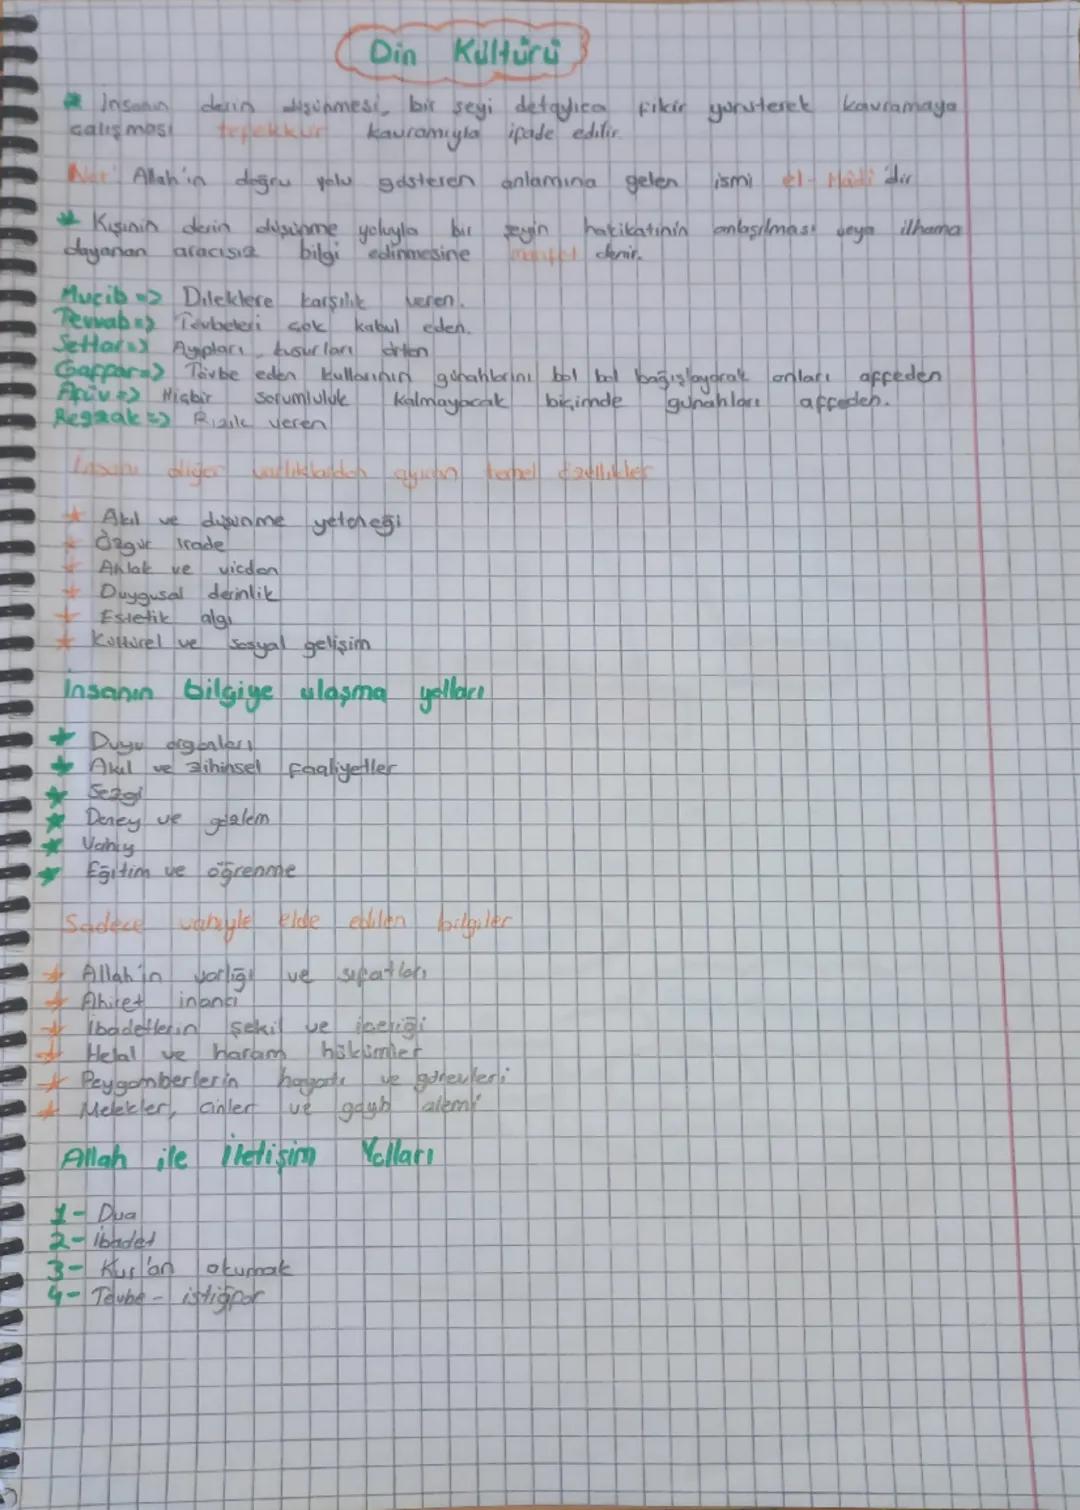 Din Kültürü
* İnsanın derin düşünmesi, bir şeyi detaylıca fikir yürüterek kavramaya
çalışması tefekkür kavramıyla ifade edilir.
Not: Allah'ın doğru yolu gösteren anlamına gelen ismi el-Hâdi'dir
* Kişinin derin düşünme yoluyla bir şeyin hakikatinin anlaşılması veya ilhama
dayanan aracısız bilgi edinmesine marifet denir.
Mucib => Dileklere karşılık veren.
Tevvab => Tövbeleri çok kabul eden.
Settar => Ayıpları, kusurları örten
Gaffar => Tövbe eden kullarının günahlarını bol bol bağışlayarak onları affeden
Afüv => Hiçbir sorumluluk kalmayacak biçimde günahları affeden.
Rezzak => Rızık veren
İnsanı diğer varlıklardan ayıran temel özellikler
* Akıl ve düşünme yeteneği
* Özgür irade
* Ahlak ve vicdan
* Duygusal derinlik
* Estetik algı
* Kültürel ve sosyal gelişim
İnsanın bilgiye ulaşma yolları
* Duyu organları
* Akıl ve zihinsel faaliyetler
* Sezgi
* Deney ve gözlem
* Vahiy
* Eğitim ve öğrenme
Sadece vahiyle elde edilen bilgiler
* Allah'ın varlığı ve sıfatları
* Ahiret inancı
* İbadetlerin şekil ve içeriği
* Helal ve haram hükümler
* Peygamberlerin hayatı ve görevleri
* Melekler, cinler ve gayb alemi
Allah ile İletişim Yolları
1- Dua
2- İbadet
3- Kur'an okumak
4- Tövbe - istiğfar